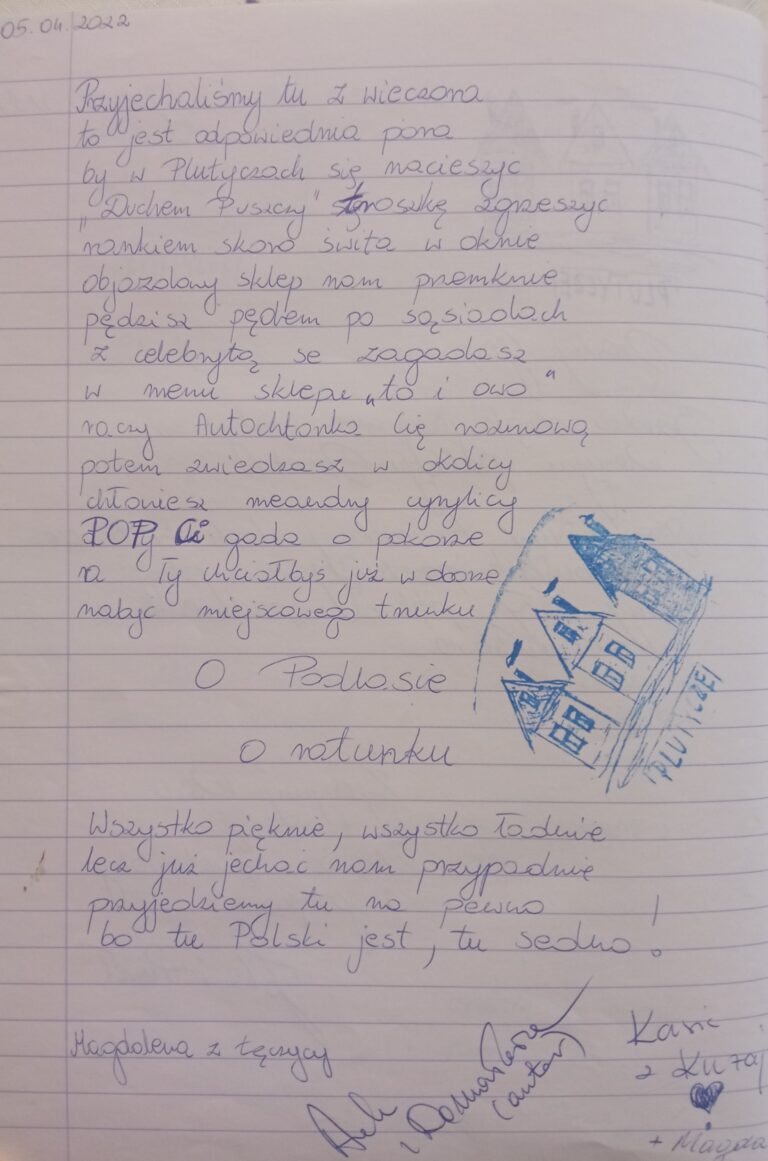 05.04.2022
Przyjechaliśmy tu z wieczora
to jest odpowiednia pora
by w Plutyczach się nacieszyc
„Duchem Puszczy" troszkę zgrzeszyc
rankiem skoro świta w oknie
objazdowy sklep nam przemknie
pędzisz pędem po sąsiadach
z celebrytą se zagadasz
w menu sklepu „to i owo"
raczy Autochtonka Cię rozmową
potem zwiedzasz w okolicy
chłoniesz meandry cyrylicy
POP Ci gada o pokorze
a Ty chciałbyś już w oborze
nabyć miejscowego trunku
O Podlasie
O ratunku
PLUTYCZE
Wszystko pięknie, wszystko ładnie
lecz już jechać nam przypadnie
przyjedziemy tu na pewno
bo tu Polski jest, tu sedno!
Magdalena z Łęczycy
(autor)
z
+ Magda